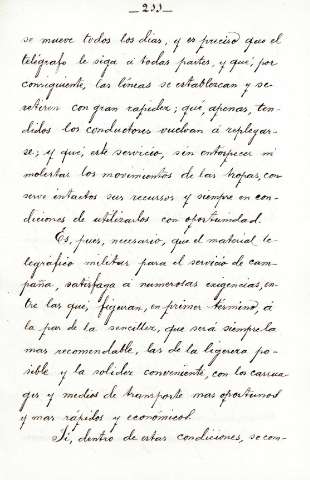 _ 211 _
se mueve todos los dias, y es preciso que el
telégrafo le siga á todas partes, y que, por
consiguiente, las líneas se establezcan y se
retiren con gran rapidez; que, apenas, ten-
didos los conductores vuelvan á replegar-
se; y que, este servicio, sin entorpecer ni
molestar los movimientos de las tropas, con
serve intactos sus recursos y siempre en con-
diciones de utilizarlos con oportunidad.
Es, pues, necesario, que el material te-
legráfico militar para el servicio de cam-
paña, satisfaga á numerosas exigencias, en-
tre las que, figuran, en primer término, á
la par de la sencillez, que será siempre la
mas recomendable, las de la ligereza po-
sible y la solidez conveniente, con los carrua-
ges y medios de transporte mas oportunos
y mas rápidos y económicos.
Si, dentro de estas condiciones, se con-